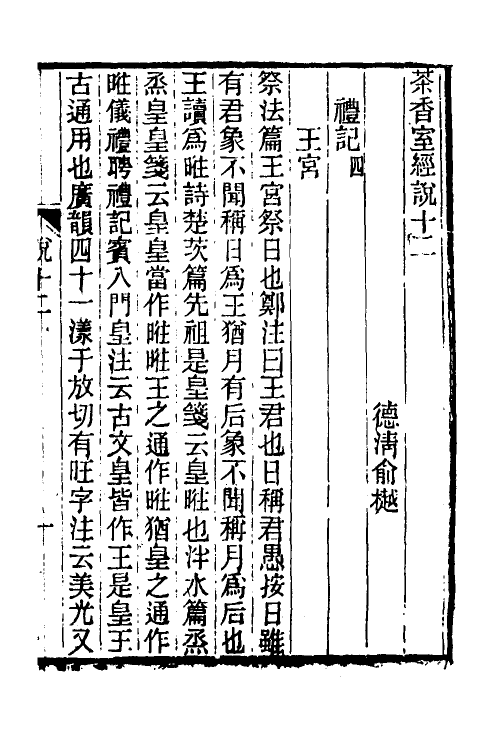 茶香室經說十二
德淸俞樾
禮記四
王宮
祭法篇王宮祭日也鄭注曰王君也日稱君愚按日雖
有君象不聞稱日爲王猶月有后象不聞稱月爲后也
王讀爲暀詩楚茨篇先祖是皇箋云皇暀也泮水篇烝
烝皇皇箋云皇皇當作暀暀王之通作暀猶皇之通作
暀儀禮聘禮記賓入門皇注云古文皇皆作王是皇王
古通用也廣韻四十一漾于放切有旺字注云美光又
說十二